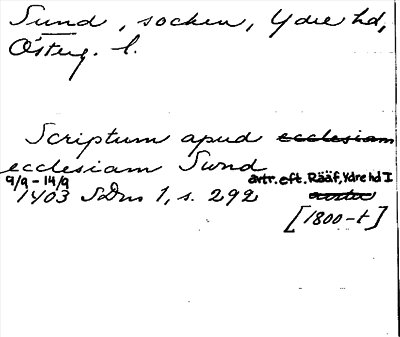 Sund, socken, Ydre hd,
Österg. l.
Scriptum apud ecclesiam
ecclesiam Sund
9/9-14/9 avtr. eft. Rääf, Ydre hd I
1403 SDns 1, s. 292
[1800-t]